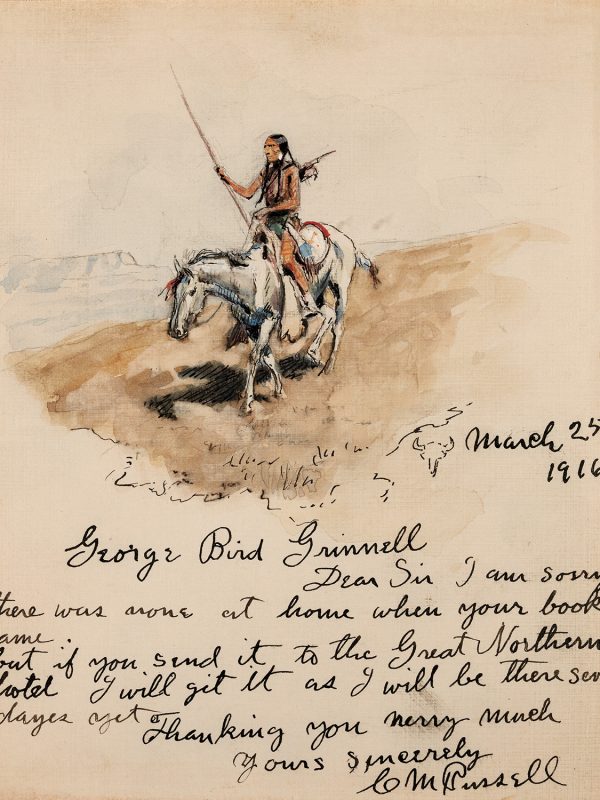 March 25
1916
George Bird Grinnell
Dear Sir I am sorry
there was none at home when your book
came.
but if you send it to the Great Northern
hotel I will git it as I will be there sev
dayes yet
Thanking you merry much
Yours sincerely
C M Russell